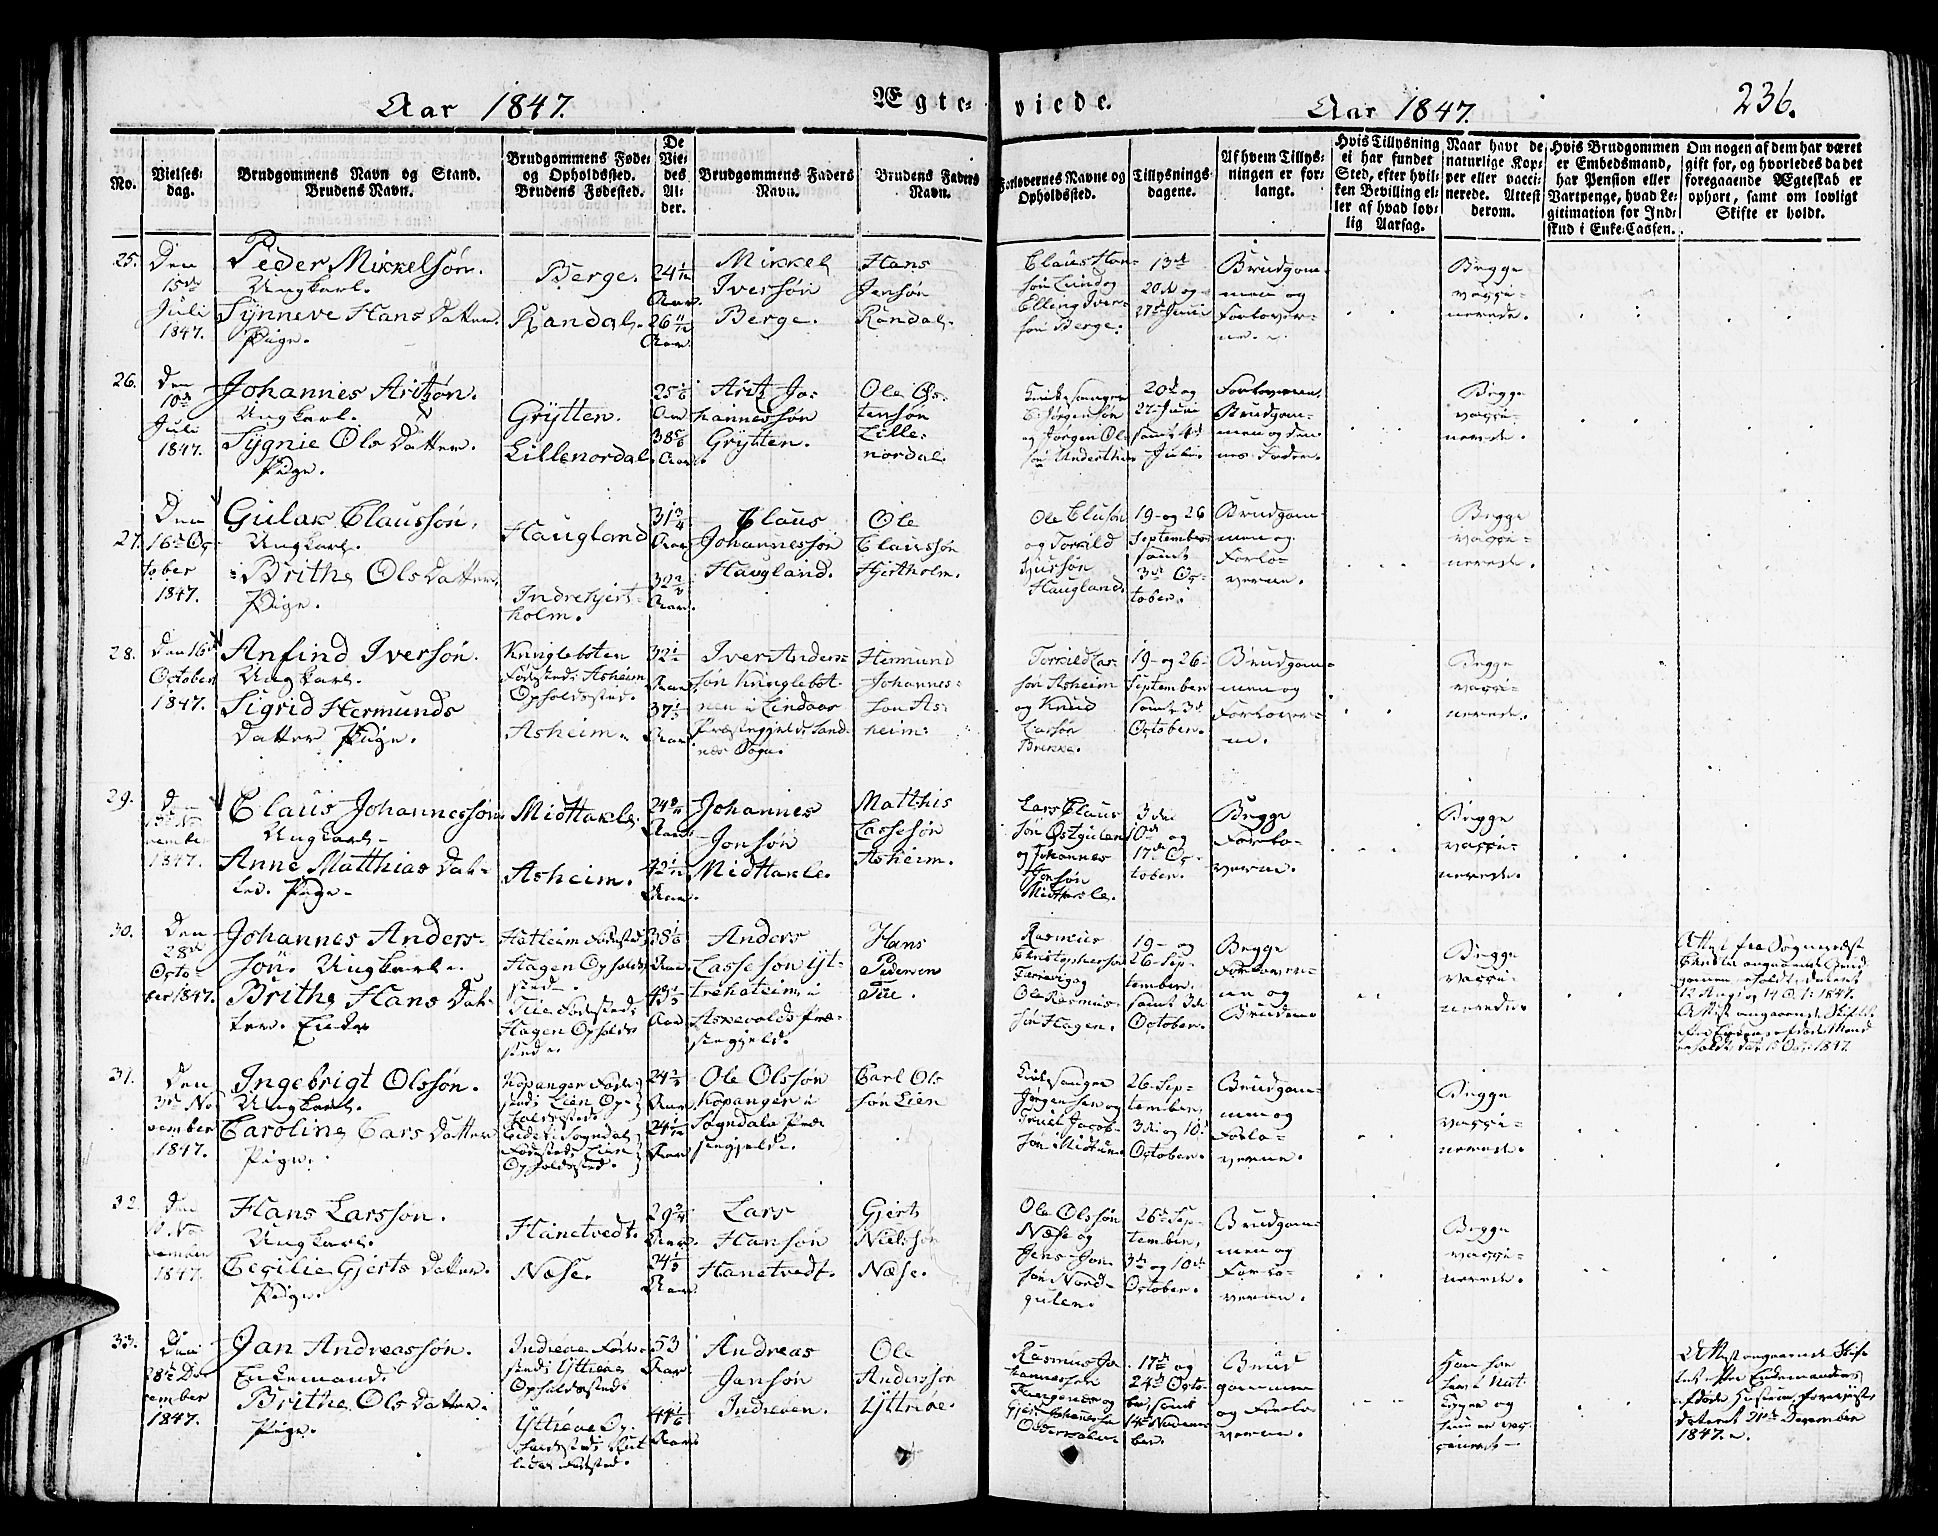 Aar 1847.
Ægte-
viede.
Aar 1847.
236.
No.
Vielses-
dag.
Brudgommens Navn og Stand.
Brudens Navn.
Brudgommens Føde-
og Opholdssted.
Brudens Fødested.
De
Vie-
des
Al-
der.
Brudgommens Faders
Navn.
Brudens Faders
Navn.
Forlovernes Navne og
Opholdssted.
Tillysnings-
dagene.
Af hvem Tillys-
ningen er for-
langt.
Hvis Tillysning
ei har fundet
Sted, efter hvil-
ken Bevilling el-
ler af hvad lov-
lig Aarsag.
Naar havt de
naturlige Kop-
per eller vacci-
nerede. Attest
derom.
Hvis Brudgommen
er Embedsmand,
har Pension eller
Vartpenge, hvad Le-
gitimation for Ind-
skud i Enke-Cassen.
Om nogen af dem har været
gift før, og hvorledes da det
foregaaende Ægteskab er
ophørt, samt om lovligt
Skifte er holdt.
25.
Den
15de
Juli
1847.
Peder Mikkelsøn.
Ungkarl.
Synneve Hans Datter
Pige.
Berge.
Randal.
24 1/12
Aar.
26 11/12
Aar
Mikkel
Iversøn
Berge.
Hans
Jensøn
Randal.
Claus Han-
søn Lund og
Elling Iver-
søn Berge.
13de
20de og
27de Juni
Brudgom-
men og
Forlover-
ne.
Begge
vacci-
nerede.
26.
Den
10de
Juli
1847.
Johannes Aritzøn.
Ungkarl.
Sygnie Ols Datter.
Pige.
Grytten.
Lillenordal.
25 1/6
Aar
38 5/6
Aar
Aritz Jo-
hannessøn
Grytten.
Ole Øs-
tensøn
Lille-
nordal.
Kirkesanger
Jørgensøn
og Jørgen Ol-
søn
20de og
27de Juni
samt 4de
Juli.
Forloverne,
Brudgom-
men og den-
nes Fader.
Begge
vacci-
nerede.
27.
Den
16de Oc-
tober
1847.
Gulak Claussøn.
Ungkarl.
Brithe Ols Datter
Pige.
Haugland
Indrehjert-
holm.
31 3/4
Aar
32
Aar.
Claus
Johannessøn
Haugland.
Ole
Claussøn
Hjertholm.
Ole Clausøn
og Torkild
Haugland.
19- og 26
September
samt
3de Oc-
tober.
Brudgom-
men og
Forlo-
verne.
Begge
vacci-
nerede.
28.
Den 16de
October
1847.
Anfind Iversøn.
Ungkarl.
Sigrid Hermunds
Datter Pige.
Kringleboten
Fødested, Asheim
Opholdssted.
Asheim.
32 1/2
Aar
37 1/3
Aar
Iver Anders-
søn Kringlebot-
nen i Lindaas
Præstegjeld, Sand-
nes Sogn.
Hermund
Johannes-
søn As-
heim.
Torkild Las-
søn Asheim
og Knud
Larsøn
Brekke.
19- og 26-
September
samt 3de
October.
Brudgom-
men og
Forlover-
ne.
Begge
vacci-
nerede.
29.
1847.
Claus Johannessøn
Ungkarl.
Anne Matthias Dat-
ter. Pige.
Midttakle.
Asheim.
Aar
42 1/12
Aar.
Johannes
Jonsøn
Midttakle.
Matthis
Lassesøn
Asheim.
Lars Claus
søn Østgulen
og Johannes
Jonsøn
Midttakle.
3de
10de og
17de Oc-
tober.
Begge
Forlo-
verne.
Begge
vacci-
nerede.
30.
Den
28de
Octo-
ber 1847.
Johannes Anders-
søn. Ungkarl.
Brithe Hans Dat-
ter. Enke
Hatleim Fødested
Hagen Opholds-
sted.
Tue Fødested,
Hagen Opholds-
sted.
38 1/6
Aar
43 1/3
Aar
Anders
Lassesøn Yt-
trehateim, i
Askevolds Præ-
stegjeld.
Hans
Pedersen
Tue.
Rasmus
Christophersøn
og
Ole Rasmus-
søn Hagen.
19- og
26- Sep-
tember,
samt 3de
October.
Begge
Forlover-
ne og
Bruden
Begge
vacci-
nerede.
12 Aug: og 14 Oct: 1847.
31.
Den
3de No-
vember
1847.
Ingebrigt Olssøn.
Ungkarl.
Caroline Cars Datter
Pige.
Kopanger Føde-
sted, Lien Op-
holdssted.
Eide i Sogndal,
Fødested, Lien
Opholdssted.
24 1/3
Aar
24 1/12
Aar
Ole Olssøn
Kopanger i
Sogndals Præ-
stegjeld.
Carl Ols
søn Lien
Kirkesanger
Jørgensen og
Truls Jacob-
søn Midtun.
26- Sep-
tember,
3de og 10de
October.
Brudgom-
men og
Forlo-
verne.
Begge
vacci-
nerede.
32.
Den
vember
1847.
Hans Larsson.
Ungkarl.
Cecilie Gjerts Datter.
Pige.
Hanetvedt.
Næse.
29 3/4
Aar.
24 1/3
Aar
Lars
Hansøn
Hanetvedt.
Gjert
Nielssøn
Næse.
Ole Olssøn
Næse og
Jens Jon-
søn Nord-
gulen.
26de Sep-
tember,
3de og 10de
October.
Brudgom-
men og
Forlo-
verne.
Begge
vacci-
nerede.
33.
Den
28de De-
cember
1847.
Jan Andreassøn.
Enkemand.
Brithe Ols Datter.
Pige.
Indreve Føde-
sted; Yttreve
Opholdssted.
Yttrøve Op-
holdssted,
53
Aar.
44 1/6
Aar
Andreas
Jansøn
Indreven.
Ole
Andersson
Yttrøve.
Rasmus Jo-
hannessøn
17de og
24de Octo-
ber, samt
14de Novem-
ber.
Brud-
gommen
og Forlo-
verne.
Attest angaaende Skif-
tet efter Enkemandens
afdøde Hustrue, foreviist,
dateret 21de December
1847.